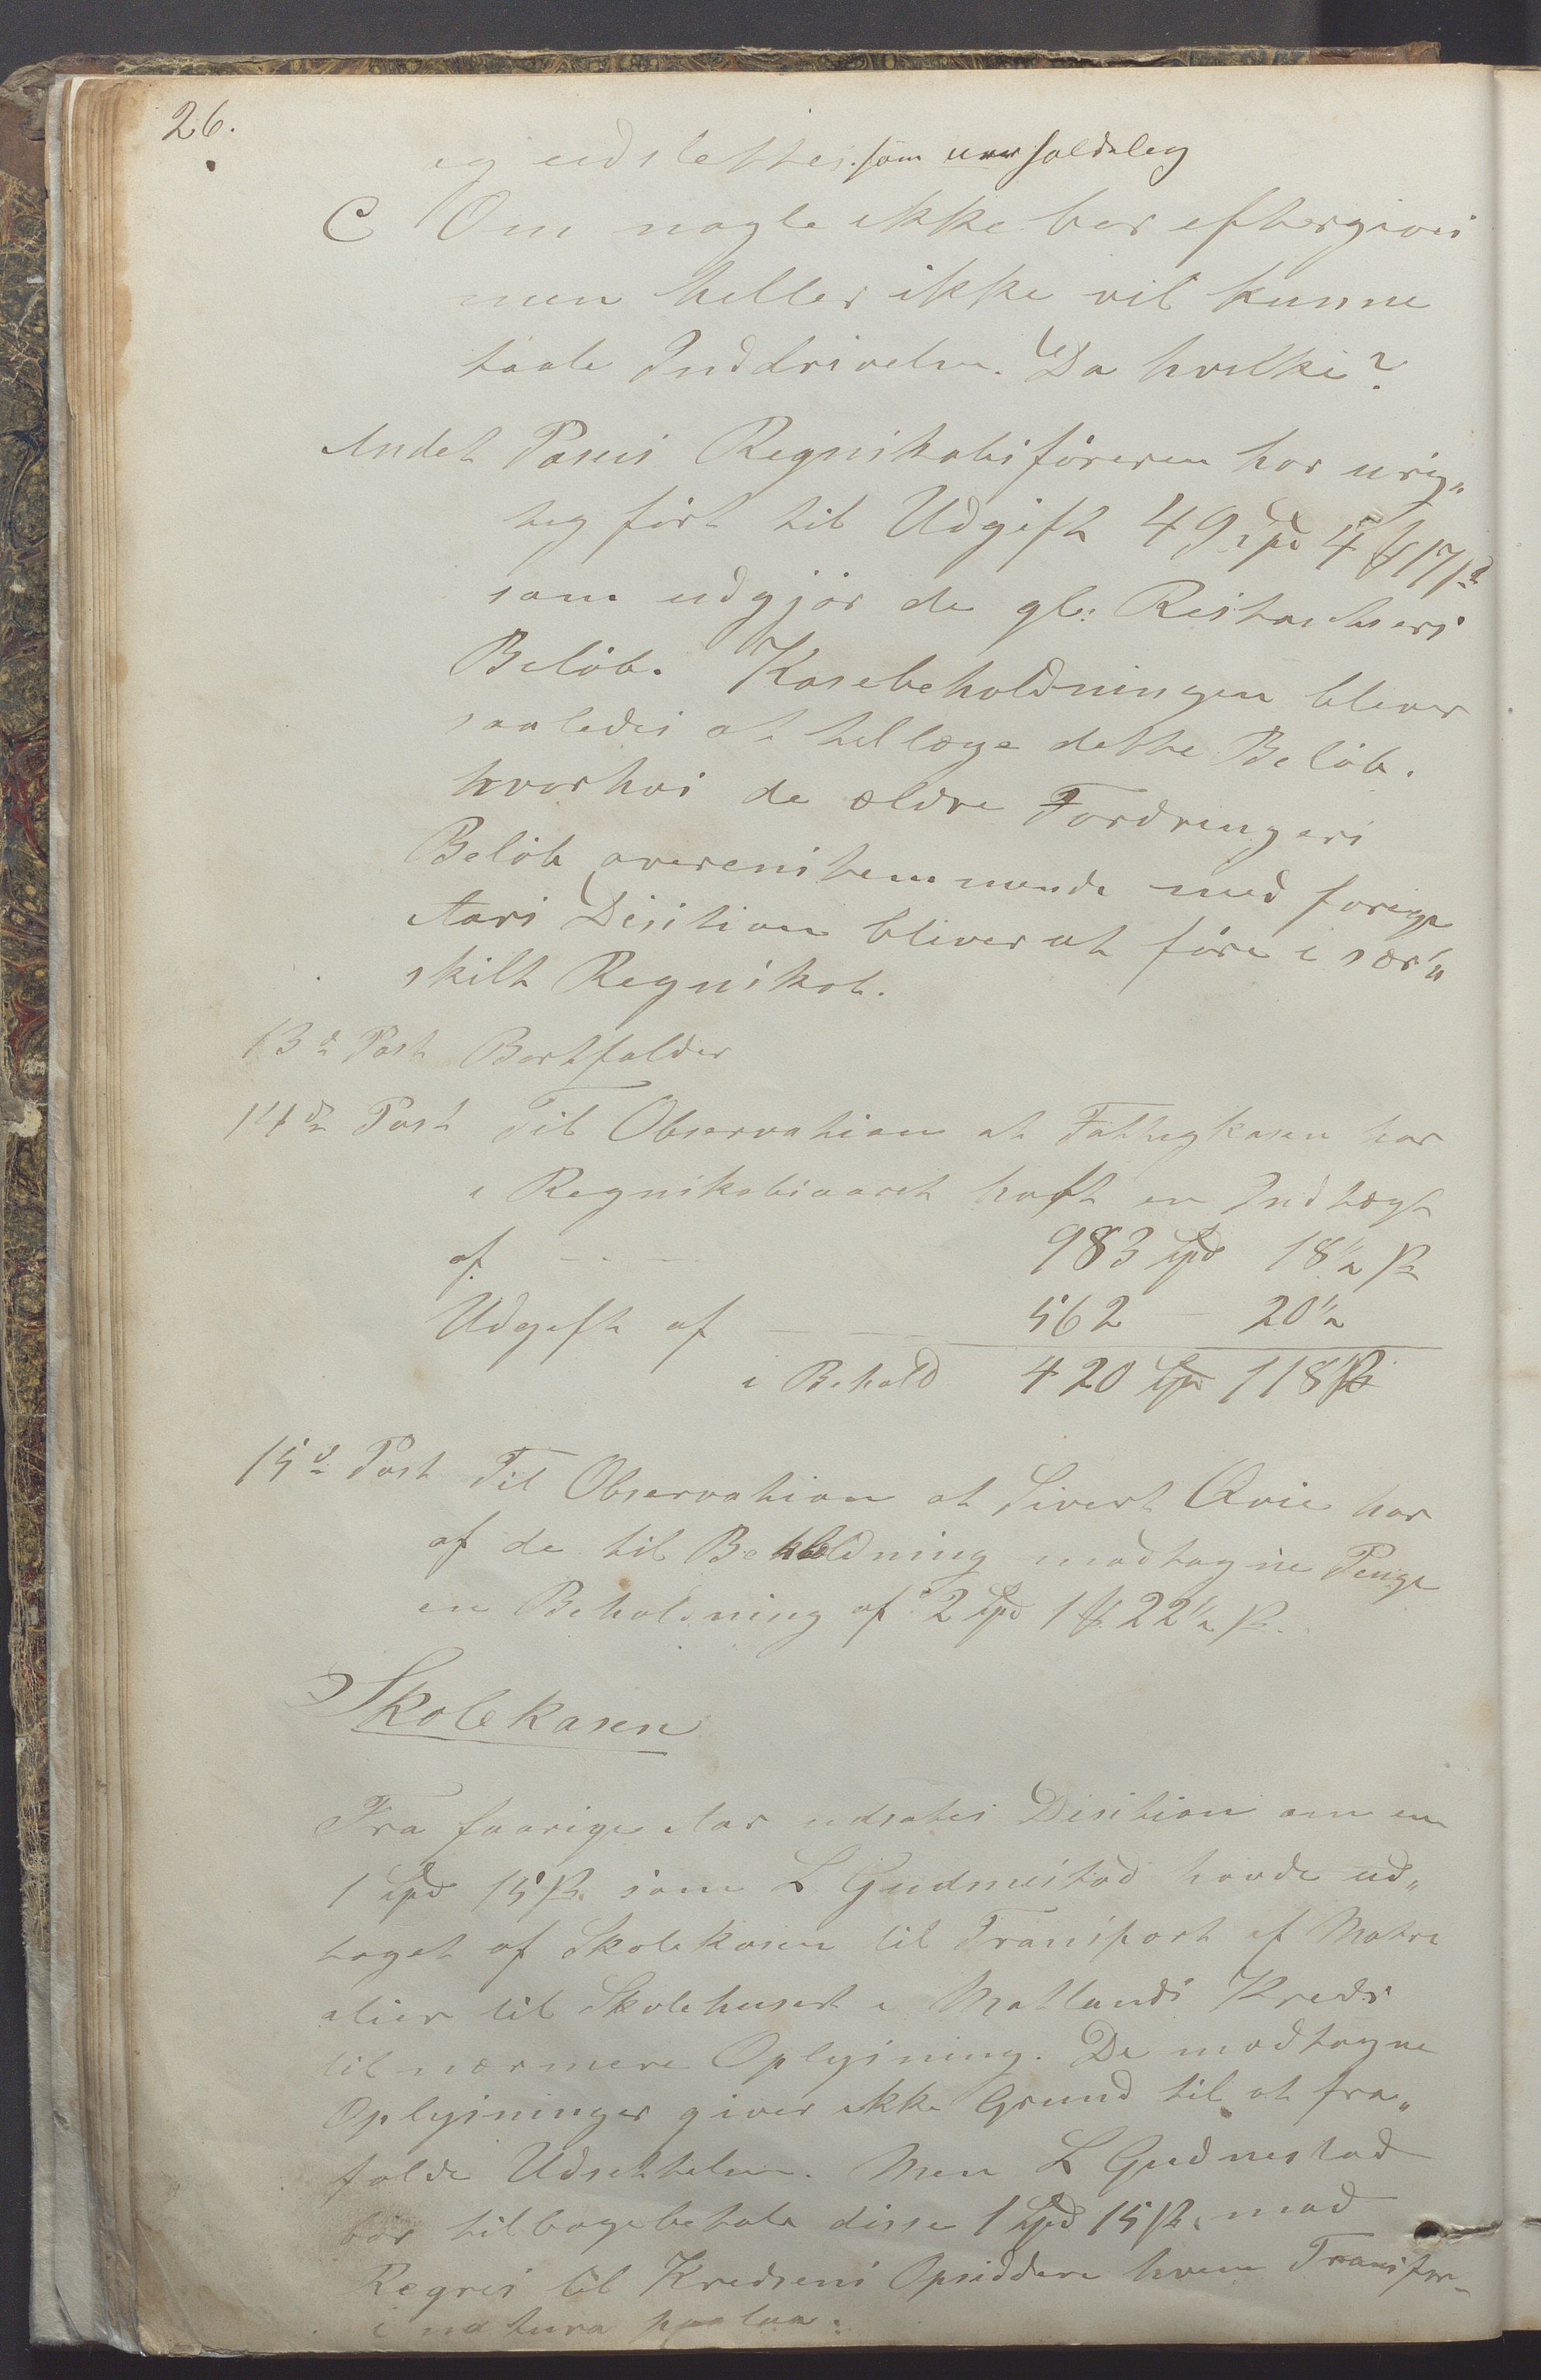 26.
og udslettes som uerholdeleg
C Om nogle ikke bør eftergives
men heller ikke vil kunne
taale Inddrivelse. Da hvilke?
Andet Passus Regnskabsføreren har urig„
teg ført til Udgift 49 Spd 4 ℔ 17 ß
som udgjør de gl: Restansers
Beløb. Kassebeholdningen bliver
saaledes at tillæge dette Beløb.
hvorhos de ældre Fordringers
Beløb overensstemmende med forige
Aars Desition bliver at føre i sær„
skilt Regnskab.
13de Post Bortfalder
14de Post Til Observation at Fattigkasen har
i Regnskabsaaret haft en Indtægt
af - - - 983 Spd 18½ ß
Udgift af — — 562 — 20½
i Behold 420 Spd 118 ß
15de Post Til Observation at Sivert Qvie har
af de til Beklædning modtagne Penge
en Beholdning af 2 Spd 1 ℔ 22½ ß.
Skolekasen
Fra foorige Aar udsates Desition om en
1 Spd 15 ß. som L Gudmestad havde ud„
taget af Skolekasen til Transport af Matre
alier til Skolehuset i Motlands Kreds
til nærmere Oplysning. De modtagne
Oplysninger giver ikke Grund til at fra„
falde Udsettelsen. Men L Gudmestad
bør tilbagebetale disse 1 Spd 15 ß. mod
Regres til Kredsens Opsiddere hvem Transpor-
i natura paalaa.